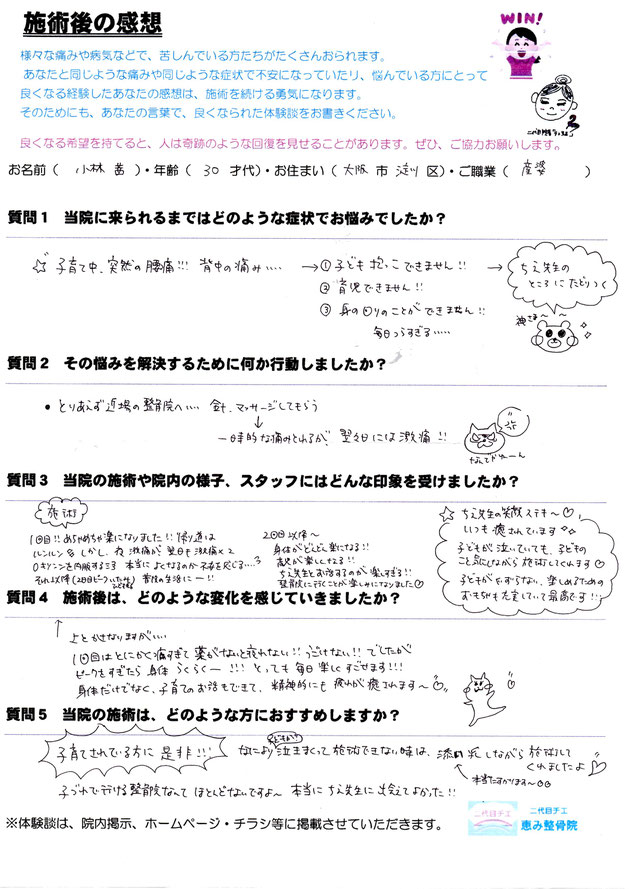 施術後の感想
WIN!
様々な痛みや病気などで、苦しんでいる方たちがたくさんおられます。
あなたと同じような痛みや同じような症状で不安になっていたり、悩んでいる方にとって
良くなる経験したあなたの感想は、施術を続ける勇気になります。
そのためにも、あなたの言葉で、良くなられた体験談をお書きください。
良くなる希望を持てると、人は奇跡のような回復を見せることがあります。ぜひ、ご協力お願いします。
お名前( 小林 茜 )・年齢( 30 才代)・お住まい( 大阪 市 淀川 区)・ご職業( 産婆 )
質問1 当院に来られるまではどのような症状でお悩みでしたか?
☆ 子育て中、突然の腰痛!!! 背中の痛み…. → ①子ども抱っこできません!! →
②育児できません!!
③身の回りのことができません!!
毎日つらすぎる…..
ちえ先生の
ところにたどりつく
神さま〜
質問2 その悩みを解決するために何か行動しましたか?
• とりあえず近場の整骨院へ…. 針、マッサージしてもらう
↓
一時的な痛みとれるが、翌日には激痛!!
なんでやねーん
質問3 当院の施術や院内の様子、スタッフにはどんな印象を受けましたか?
施術
1回目!! めちゃめちゃ楽になりました!! 帰り道は
ルンルン しかし、夜 激痛が 翌日も激痛×2
ロキソニンを内服すること3 本当によくなるのか不安を感じる…
それ以降(2日目ピークいたみ) 普段の生活にー!!
2回目以降〜
身体がどんどん楽になる!!
育児が楽しくなる!!
ちえ先生とお話するのが楽しすぎる!!
整骨院に行くことが楽しみになりました♡
☆ ちえ先生の笑顔ステキ〜♡
いつも癒されています
子どもが泣いていても、子どもの
こと気にしながら施術してくれます♡
子どもがぐずらない、楽しめるための
おもちゃも充実していて最高です!!
質問4 施術後は、どのような変化を感じていきましたか?
↑ 上とかさなりますが….
1回目はとにかく痛すぎて薬がないと夜ねれない!! うごけない!! でしたが
ピークをすぎたら身体 らくらくー!!! とっても毎日楽しくすごせます!!!
身体だけでなく、子育てのお話もできて、精神的にも疲れが癒されます〜♡
質問5 当院の施術は、どのような方におすすめしますか?
子育てされている方に是非!!! なにより 泣きまくって施術できない時は、添い乳しながら施術して
くれましたよ♡
本当たすかります〜
子づれで行ける整骨院なんてほとんどないですよ〜 本当にちえ先生に出会えてよかった!!
※体験談は、院内掲示、ホームページ・チラシ等に掲載させていただきます。
二代目チエ
二代目チエ
恵み整骨院